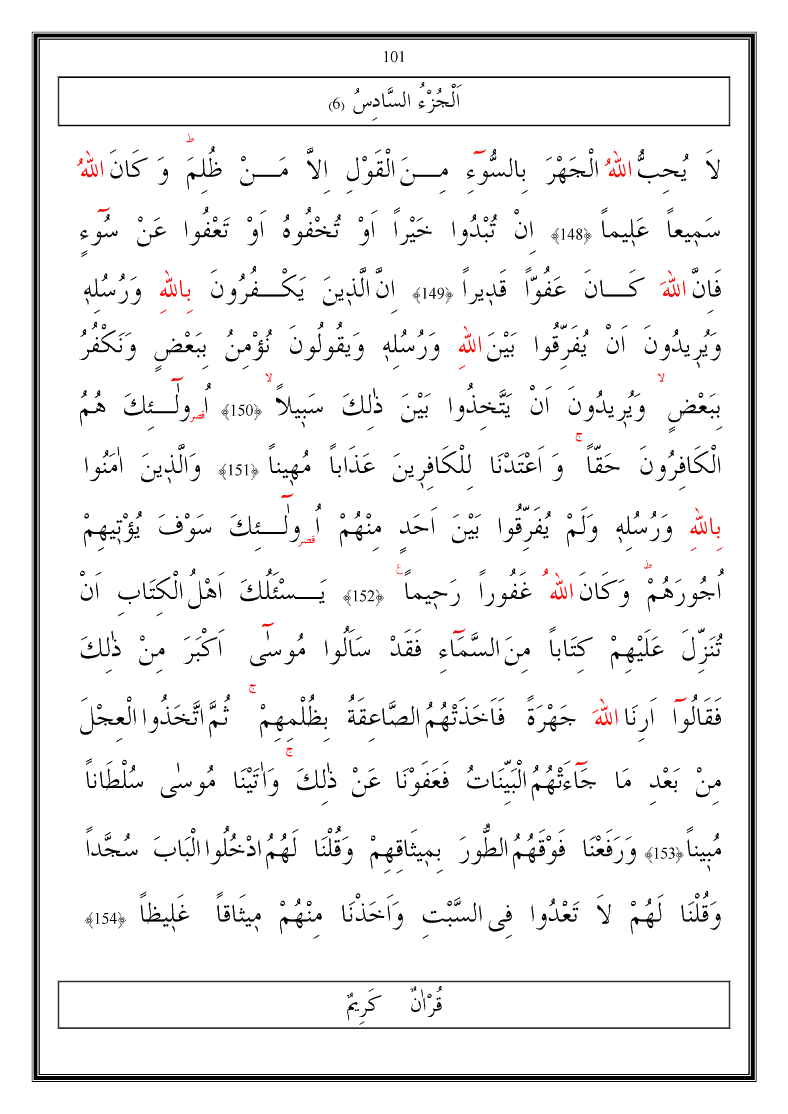 101
اَلْجُزْءُ السَّادِسُ (6)
لاَ يُحِبُّ اللهُ الْجَهْرَ بِالسُّوٓءِ مِـــنَ الْقَوْلِ اِلاَّ مَـــنْ ظُلِمَؕ وَ كَانَ اللهُ
سَمٖيعاً عَلٖيماً ﴿148﴾ اِنْ تُبْدُوا خَيْراً اَوْ تُخْفُوهُ اَوْ تَعْفُوا عَنْ سُوٓءٍ
فَاِنَّ اللهَ كَـــانَ عَفُوّاً قَدٖيراً ﴿149﴾ اِنَّ الَّذٖينَ يَكْـــفُرُونَ بِاللهِ وَرُسُلِهٖ
وَيُرٖيدُونَ اَنْ يُفَرِّقُوا بَيْنَ اللهِ وَرُسُلِهٖ وَيَقُولُونَ نُؤْمِنُ بِبَعْضٍ وَنَكْفُرُ
بِبَعْضٍۙ وَيُرٖيدُونَ اَنْ يَتَّخِذُوا بَيْنَ ذٰلِكَ سَبٖيلاًۙ ﴿150﴾ اُوقصرلٰٓـــئِكَ هُمُ
الْكَافِرُونَ حَقّاًۚ وَ اَعْتَدْنَا لِلْكَافِرٖينَ عَذَاباً مُهٖيناً ﴿151﴾ وَالَّذٖينَ اٰمَنُوا
بِاللهِ وَرُسُلِهٖ وَلَمْ يُفَرِّقُوا بَيْنَ اَحَدٍ مِنْهُمْ اُوقصرلٰٓـــئِكَ سَوْفَ يُؤْتٖيهِمْ
اُجُورَهُمْؕ وَكَانَ اللهُ غَفُوراً رَحٖيماًࣖ ﴿152﴾ يَـــسْئَلُكَ اَهْلُ الْكِتَابِ اَنْ
تُنَزِّلَ عَلَيْهِمْ كِتَاباً مِنَ السَّمَٓاءِ فَقَدْ سَاَلُوا مُوسٰٓى اَكْبَرَ مِنْ ذٰلِكَ
فَقَالُٓوا اَرِنَا اللهَ جَهْرَةً فَاَخَذَتْهُمُ الصَّاعِقَةُ بِظُلْمِهِمْۚ ثُمَّ اتَّخَذُوا الْعِجْلَ
مِنْ بَعْدِ مَا جَٓاءَتْهُمُ الْبَيِّنَاتُ فَعَفَوْنَا عَنْ ذٰلِكَۚ وَاٰتَيْنَا مُوسٰى سُلْطَاناً
مُبٖيناً ﴿153﴾ وَرَفَعْنَا فَوْقَهُمُ الطُّورَ بِمٖيثَاقِهِمْ وَقُلْنَا لَهُمُ ادْخُلُوا الْبَابَ سُجَّداً
وَقُلْنَا لَهُمْ لاَ تَعْدُوا فِى السَّبْتِ وَاَخَذْنَا مِنْهُمْ مٖيثَاقاً غَلٖيظاً ﴿154﴾
قُرْاٰنٌ كَرِيمٌ